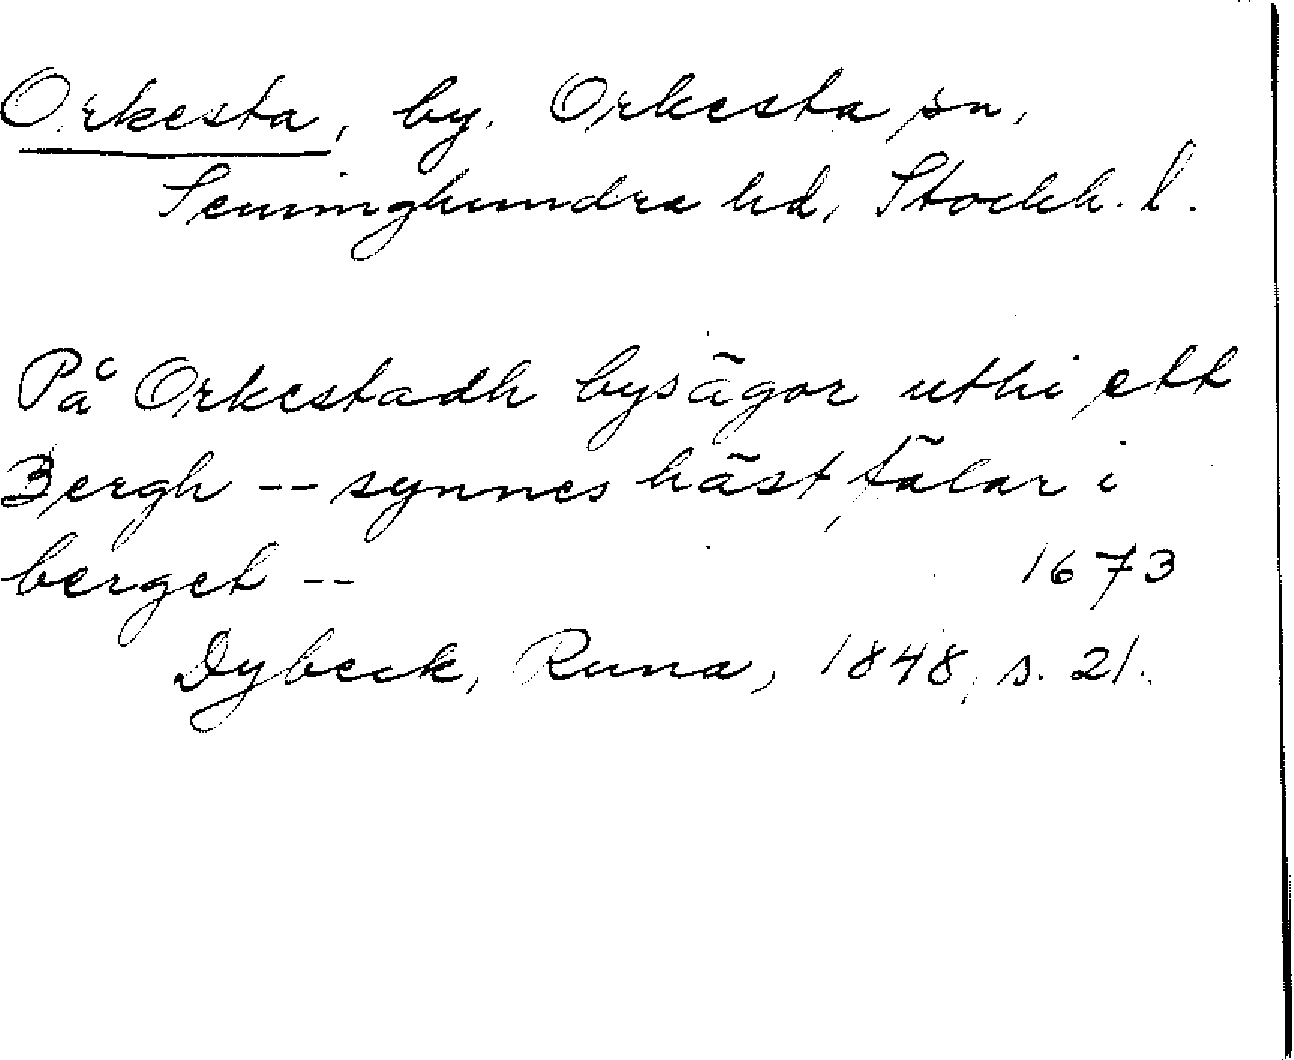 Orkesta, by. Orkesta sn,
Seminghundra hd, Stockh. l.
På Orkestadh bysägor uthi ett
Bergh -- synnes häst fälar i
berget -- 1673
Dybeck, Runa, 1848, s. 21.